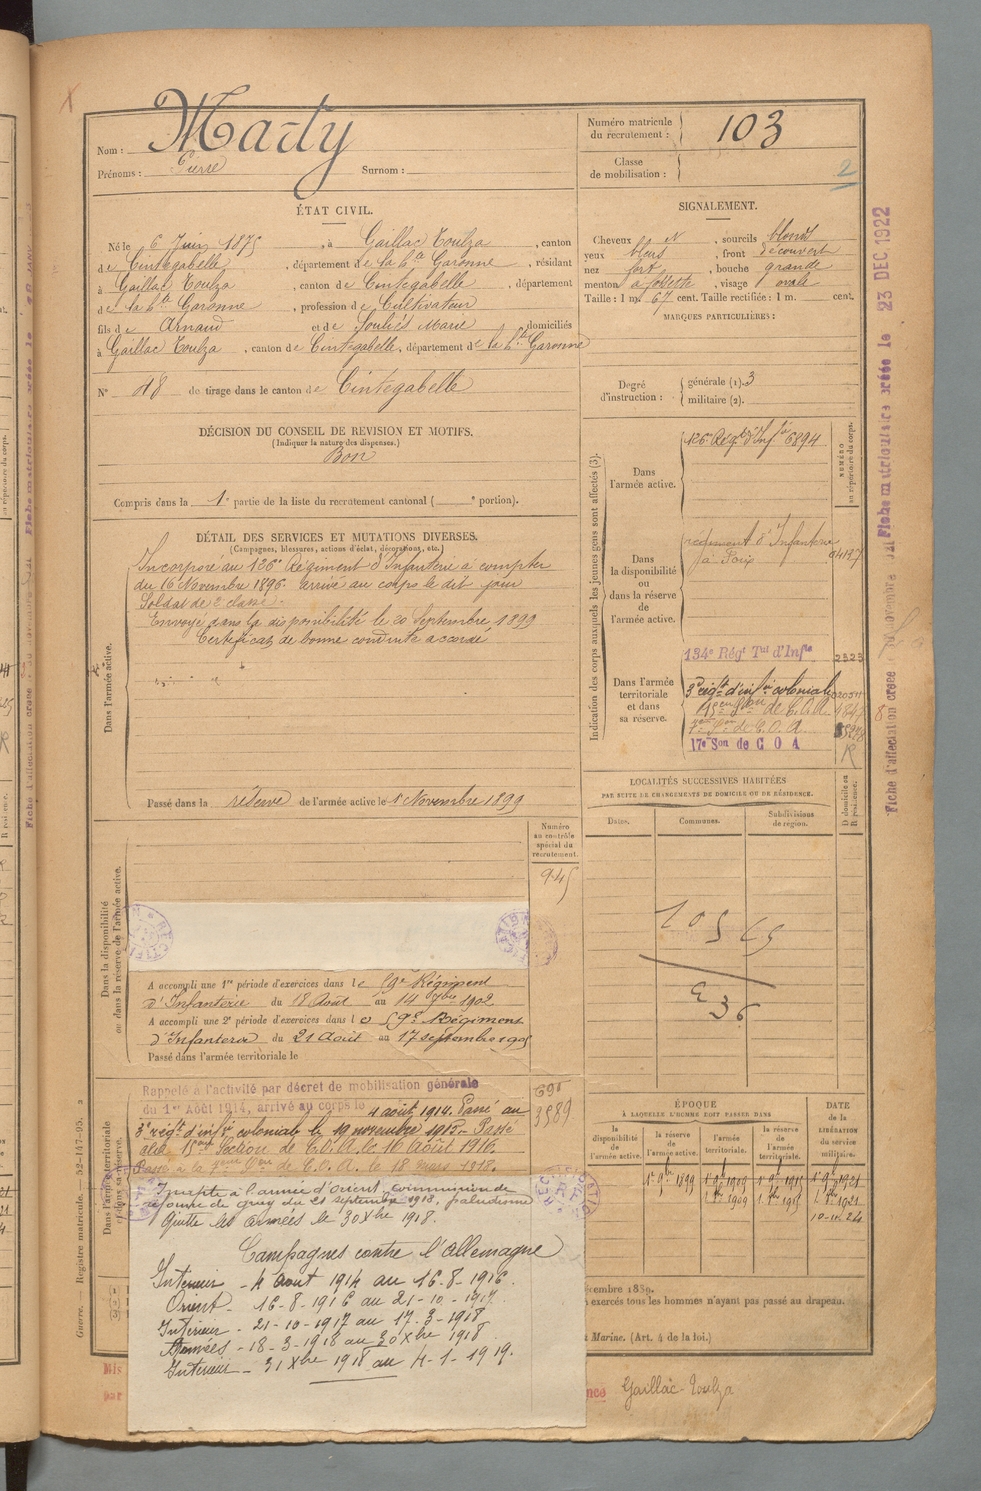 Nom : Marty
Prénoms : Pierre Surnom :
Numéro matricule
du recrutement : 103
Classe
de mobilisation :
2
ÉTAT CIVIL.
Né le 6 Juin 1875, à Gaillac Toulza, canton
de Cintegabelle, département de la Hte Garonne, résidant
à Gaillac Toulza, canton de Cintegabelle, département
de la Hte Garonne, profession de Cultivateur
fils de Arnaud et de Souliés Marie domiciliés
à Gaillac Toulza, canton de Cintegabelle, département de la Hte Garonne
N° 48 de tirage dans le canton de Cintegabelle
SIGNALEMENT.
Cheveux , sourcils blonds
yeux bleus, front découvert
nez fort, bouche grande
menton à fossette, visage ovale
Taille : 1 m. 67 cent. Taille rectifiée : 1 m. cent.
MARQUES PARTICULIÈRES :
Degré
d'instruction :
générale (1). 3
militaire (2).
DÉCISION DU CONSEIL DE REVISION ET MOTIFS.
(Indiquer la nature des dispenses.)
Bon
Compris dans la 1e partie de la liste du recrutement cantonal ( e portion).
DÉTAIL DES SERVICES ET MUTATIONS DIVERSES.
(Campagnes, blessures, actions d'éclat, décorations, etc.)
Dans l'armée active.
Incorporé au 126e Régiment d'Infanterie à compter
du 16 Novembre 1896 arrivé au corps le dit jour
Soldat de 2e classe
Envoyé dans la disponibilité le 20 Septembre 1899
Certificat de bonne conduite accordé
Passé dans la réserve de l'armée active le 1er Novembre 1899
Indication des corps auxquels les jeunes gens sont affectés (3).
NUMÉRO
au répertoire du corps.
Dans
l'armée active.
126e Régt d'Infie 6894
Dans
la disponibilité
ou
dans la réserve
de
l'armée active.
régiment d'Infanterie
à Foix
134e Régt Tal d'Infie 2523
Dans l'armée
territoriale
et dans
sa réserve.
3e régt d'infie coloniale
15eme Son de C.O.A.
7eme Son de C.O.A.
17e Son de C O A
R
LOCALITÉS SUCCESSIVES HABITÉES
PAR SUITE DE CHANGEMENTS DE DOMICILE OU DE RÉSIDENCE.
Dates.
Communes.
Subdivisions
de région.
D domicile ou
R résidence.
236
Dans la disponibilité
ou dans la réserve de l'armée active.
Numéro
au contrôle
spécial du
recrutement.
945
A accompli une 1re période d'exercices dans le 59e Régiment
d'Infanterie du 18 Août au 14 7bre 1902
A accompli une 2e période d'exercices dans le 59e Régiment
d'Infanterie du 21 Août au 17 septembre 1905
Passé dans l'armée territoriale le
Dans l'armée territoriale
et dans sa réserve.
Rappelé à l'activité par décret de mobilisation générale
du 1er Août 1914, arrivé au corps le 4 août 1914. Passé au
3e régt d'infie coloniale le 19 novembre 1915. Passé
à la 15eme Section de C.O.A. le 16 Août 1916.
Passé à la 7eme Son de C.O.A. le 18 mars 1918.
695
3589
Inapte à l'armée d'orient, commission de
réforme de gray du 21 septembre 1918, paludisme
Quitte les armées le 30 Xbre 1918.
Campagnes contre l'allemagne
Intérieur - 4 août 1914 au 16-8-1916.
Orient - 16-8-1916 au 21-10-1917.
Intérieur - 21-10-1917 au 17-3-1918
Armées - 18-3-1918 au 30 Xbre 1918
Intérieur - 31 Xbre 1918 au 4-1-1919.
ÉPOQUE
À LAQUELLE L'HOMME DOIT PASSER DANS
la
disponibilité
de
l'armée active.
la réserve
de
l'armée active.
l'armée
territoriale.
la réserve
de
l'armée
territoriale.
DATE
de la
LIBÉRATION
du service
militaire.
1er 9bre 1899 1er 9bre 1909 1er 9bre 1915 1er 9bre 1921
1er 8bre 1909 1er 8bre 1915 1er 8bre 1921
10-11-24
écembre 1889.
exercés tous les hommes n'ayant pas passé au drapeau.
Marine. (Art. 4 de la loi.)
Gaillac-Toulza
Guerre. — Registre matricule. — 52-147-95.
23 DEC 1922
Fiche matriculaire créée le
Fiche d'affectation créée le novembre